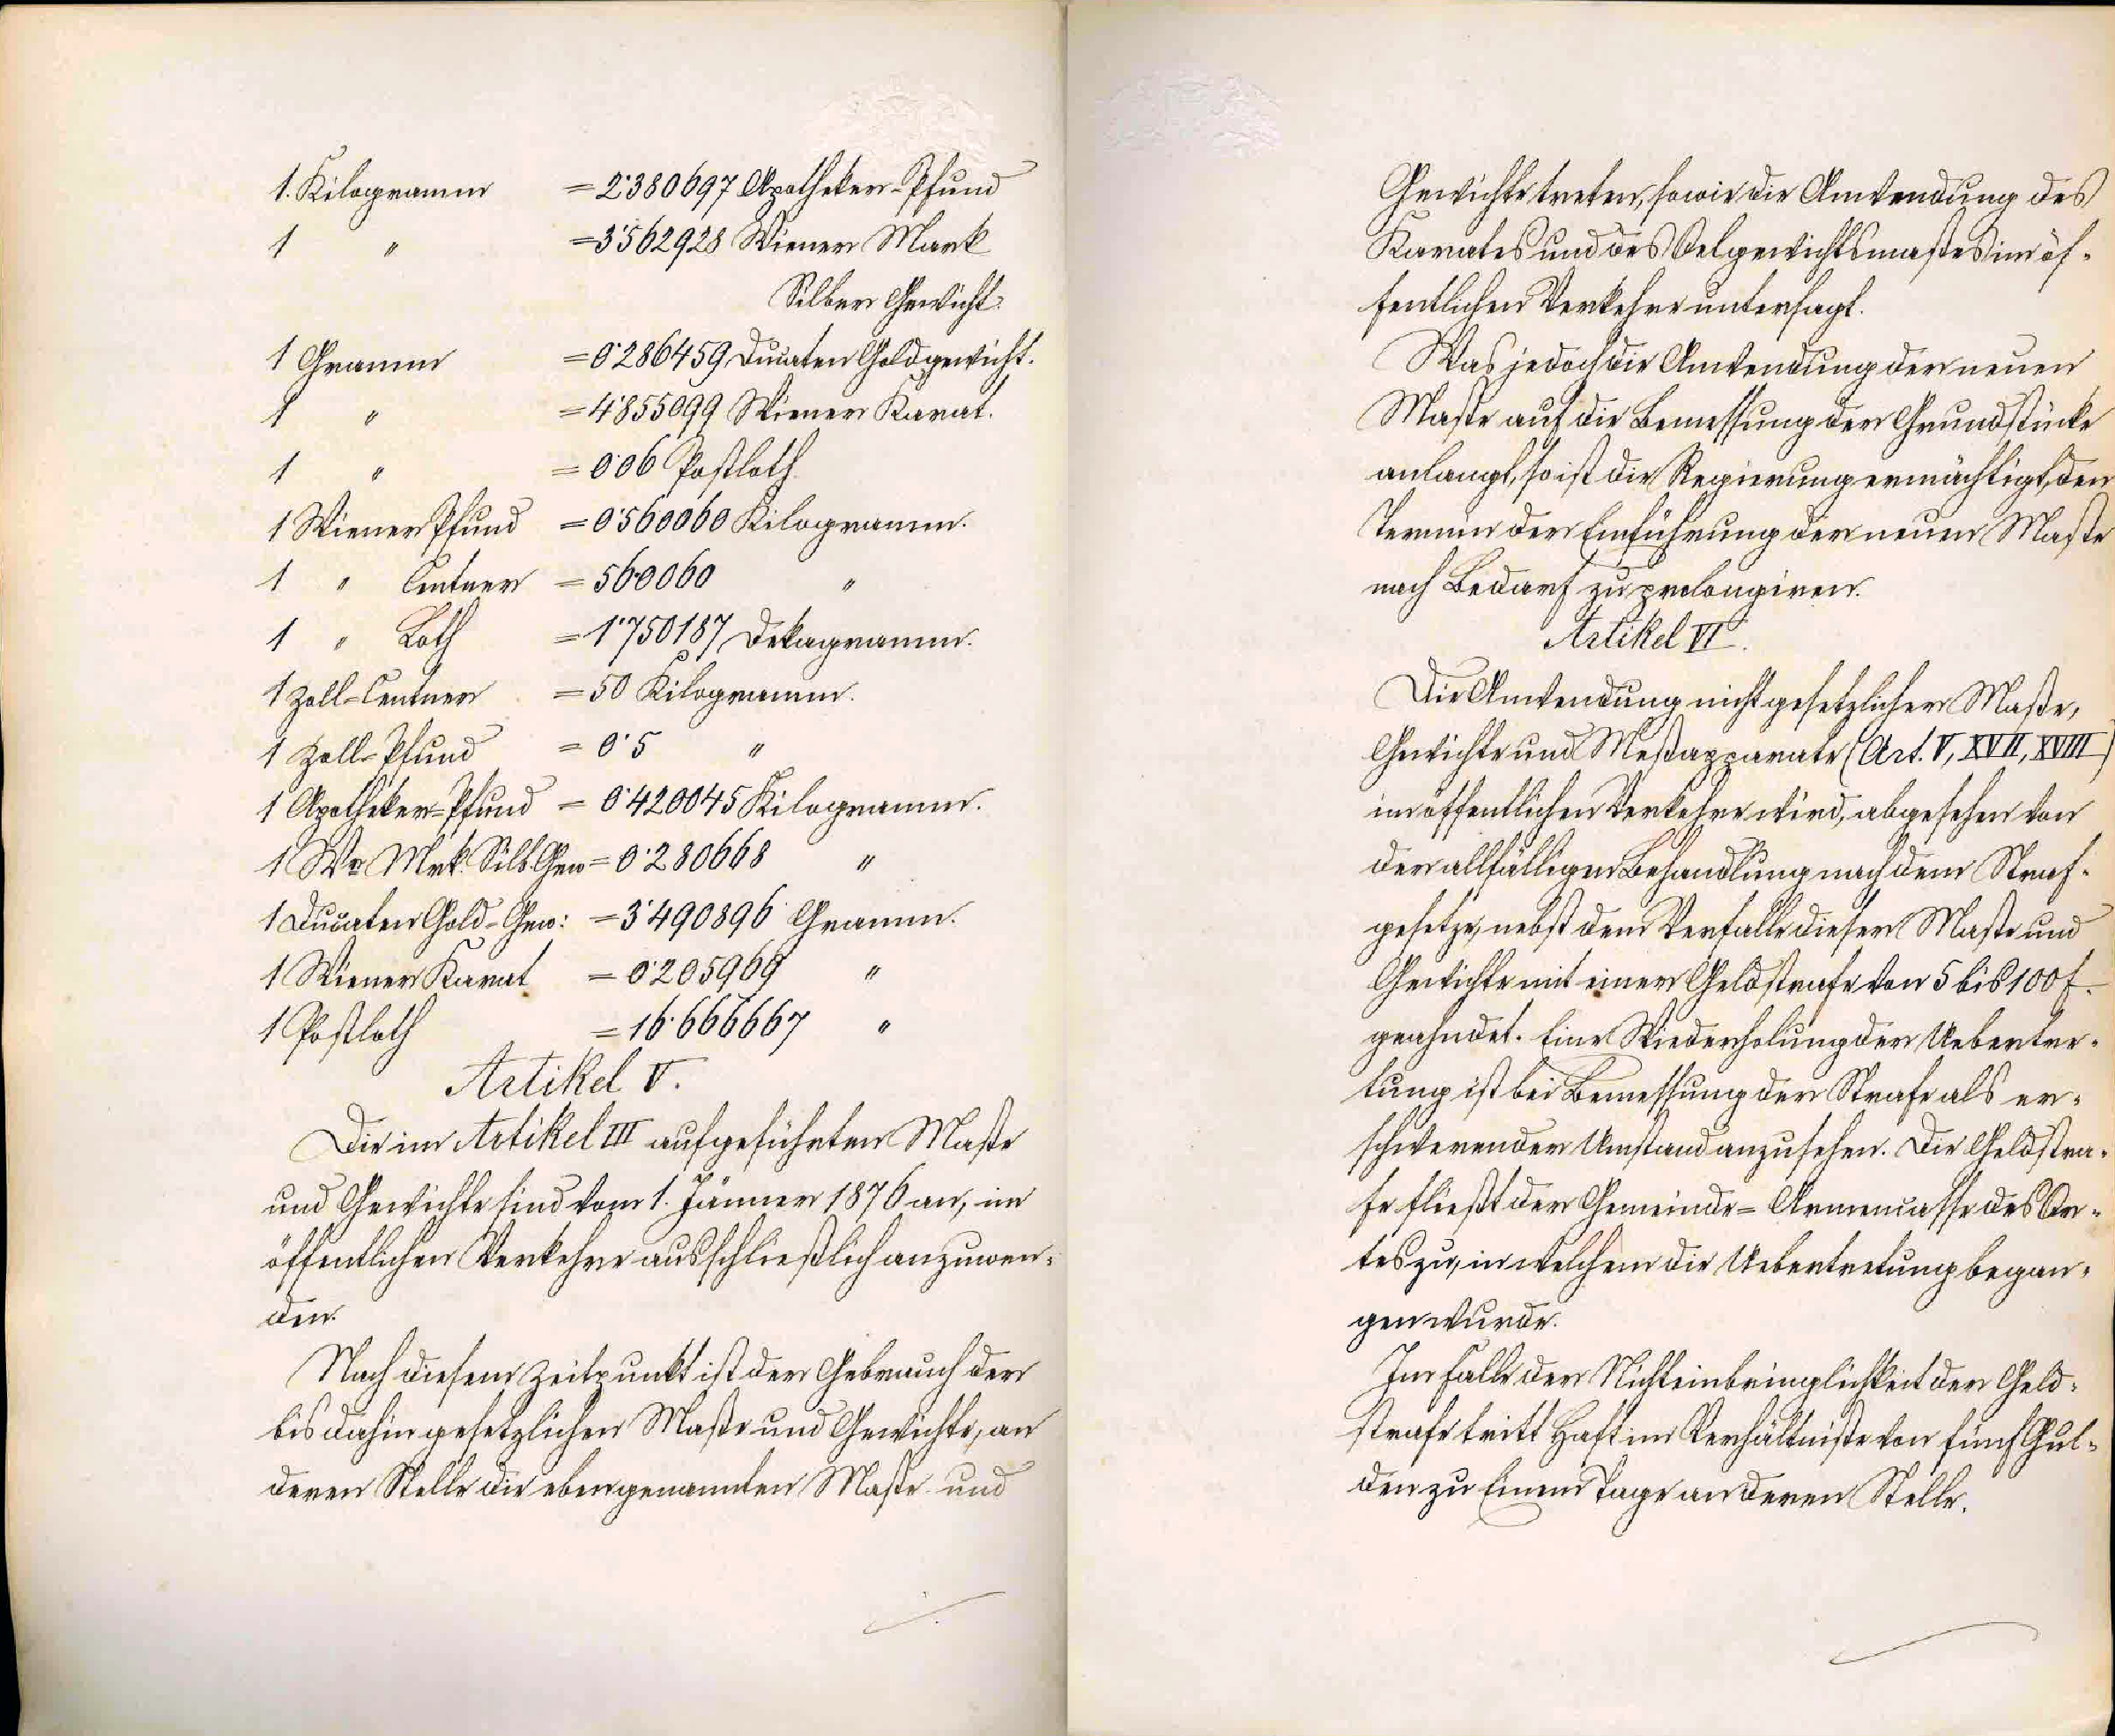 1. Kilogramm =2·380697 Apotheker-Pfund
1 " =3·562928 Wiener Mark
Silber Gewicht.
1 Gramm =0·286459 Ducaten Goldgewicht.
1 " =4·855099 Wiener Karat.
1 " =0·06 Postloth.
1 Wiener Pfund =0·560060 Kilogramm.
1 " Centner =56·0060 "
1 " Loth =1·750187 Dekagramm.
1 Zoll-Centner =50 Kilogramm.
1 Zoll-Pfund =0·5 "
1 Apotheker-Pfund =0·420045 Kilogramm.
1 Wr Mrk. Silb. Gew =0·280668 "
1 Ducaten Gold-Gew: =3·490896 Gramm.
1 Wiener Karat =0·205969 "
1 Postloth =16·666667 "
Artikel V.
Die im Artikel III aufgeführten Maße
und Gewichte sind vom 1. Jänner 1876 an, im
öffentlichen Verkehre ausschließlich anzuwen-
den.
Nach diesem Zeitpunkt ist der Gebrauch der
bis dahin gesetzlichen Maße und Gewichte, an
deren Stelle die ebengenannten Maße und
Gewichte treten, sowie die Anwendung des
Karates und des Oelgewichtsmaßes im öf-
fentlichen Verkehre untersagt.
Was jedoch die Anwendung der neuen
Maße auf die Bemessung der Grundstücke
anlangt, so ist die Regierung ermächtigt, den
Termin der Einführung der neuen Maße
nach Bedarf zu prolongiren.
Artikel VI.
Die Anwendung nicht gesetzlicher Maße,
Gewichte und Meßapparate (Art. V, XVII, XVIII)
im öffentlichen Verkehre wird, abgesehen von
der allfälligen Behandlung nach dem Straf-
gesetze, nebst dem Verfalle dieser Maße und
Gewichte mit einer Geldstrafe von 5 bis 100 f.
geahndet. Eine Wiederholung der Uebertre-
tung ist bei Bemessung der Strafe als er-
schwerender Umstand anzusehen. Die Geldstra-
fe fließt der Gemeinde-Armencasse des Or-
tes zu, in welchem die Uebertretung began-
gen wurde.
Im Falle der Nichteinbringlichkeit der Geld-
strafe tritt Haft im Verhältniße von fünf Gul-
den zu Einem Tage an deren Stelle.